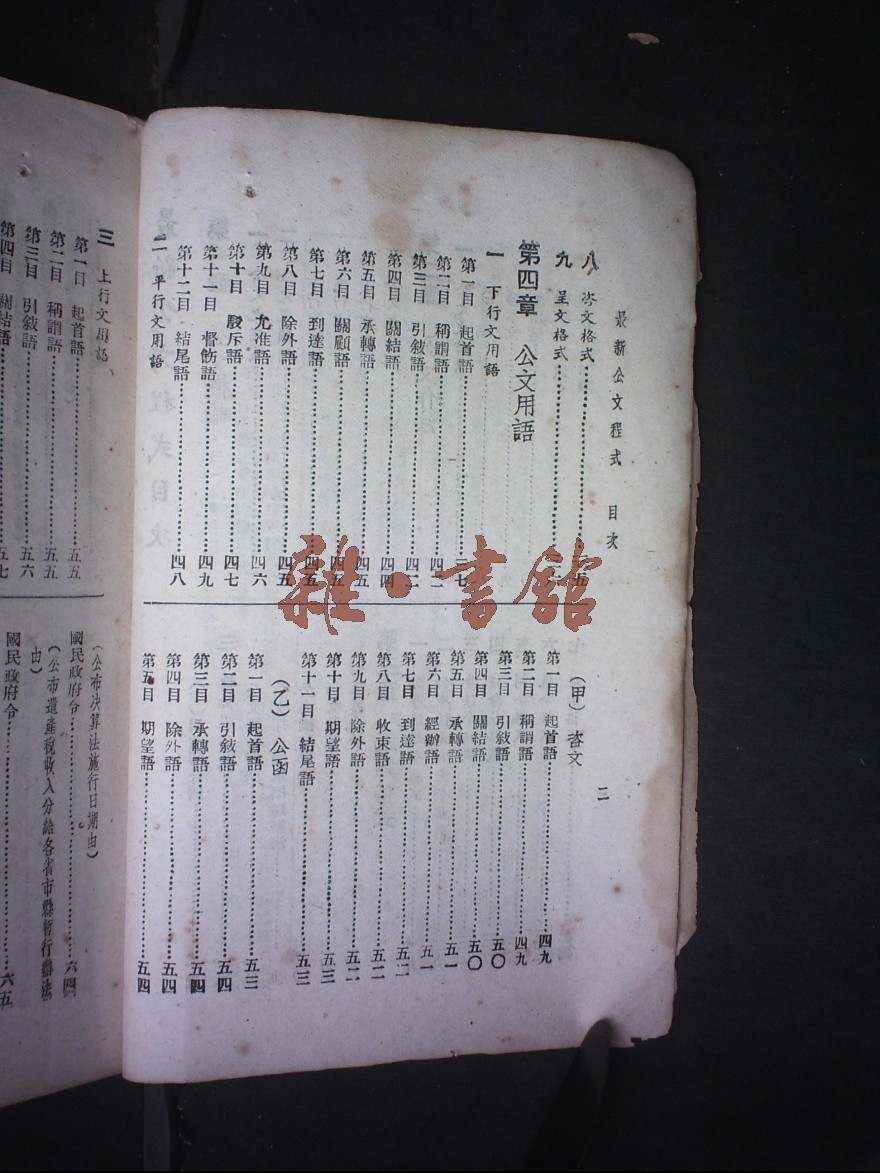 最新公文程式 目次
二
八 咨文格式
九 呈文格式
第四章 公文用語
一 下行文用語
第一目 起首語
第二目 稱謂語
第三目 引敍語
第四目 關結語……四四
第五目 承轉語……四五
第六目 關顧語……四五
第七目 到達語……四五
第八目 除外語……四五
第九目 允准語……四六
第十目 駁斥語……四七
第十一目 督飭語……四九
第十二目 結尾語……四八
二 平行文用語
(甲)咨文
第一目 起首語……四九
第二目 稱謂語……四九
第三目 引敍語……五〇
第四目 關結語……五〇
第五目 承轉語……五一
第六目 經辦語……五一
第七目 到達語……五二
第八目 收束語……五二
第九目 除外語……五二
第十目 期望語……五三
第十一目 結尾語……五三
(乙)公函
第一目 起首語……五三
第二目 引敍語……五四
第三目 承轉語……五四
第四目 除外語……五四
第五目 期望語……五四
三 上行文用語
第一目 起首語……五五
第二目 稱謂語……五五
第三目 引敍語……五六
第四目 關結語……五七
(公布決算法施行日期由)
國民政府令……六四
(公布遺產稅收入分給各省市縣暫行辦法
由)
國民政府令……六五
雜·書館